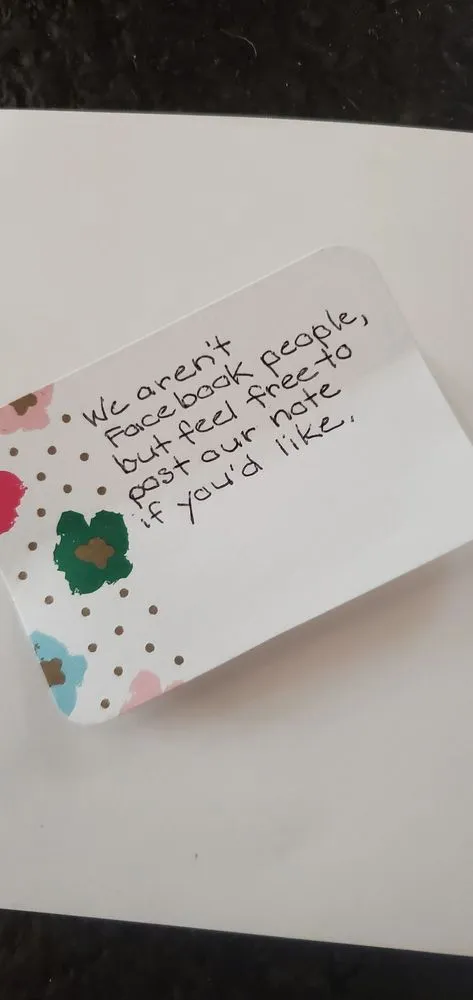 We aren't
Facebook people,
but feel free to
post our note
if you'd like.